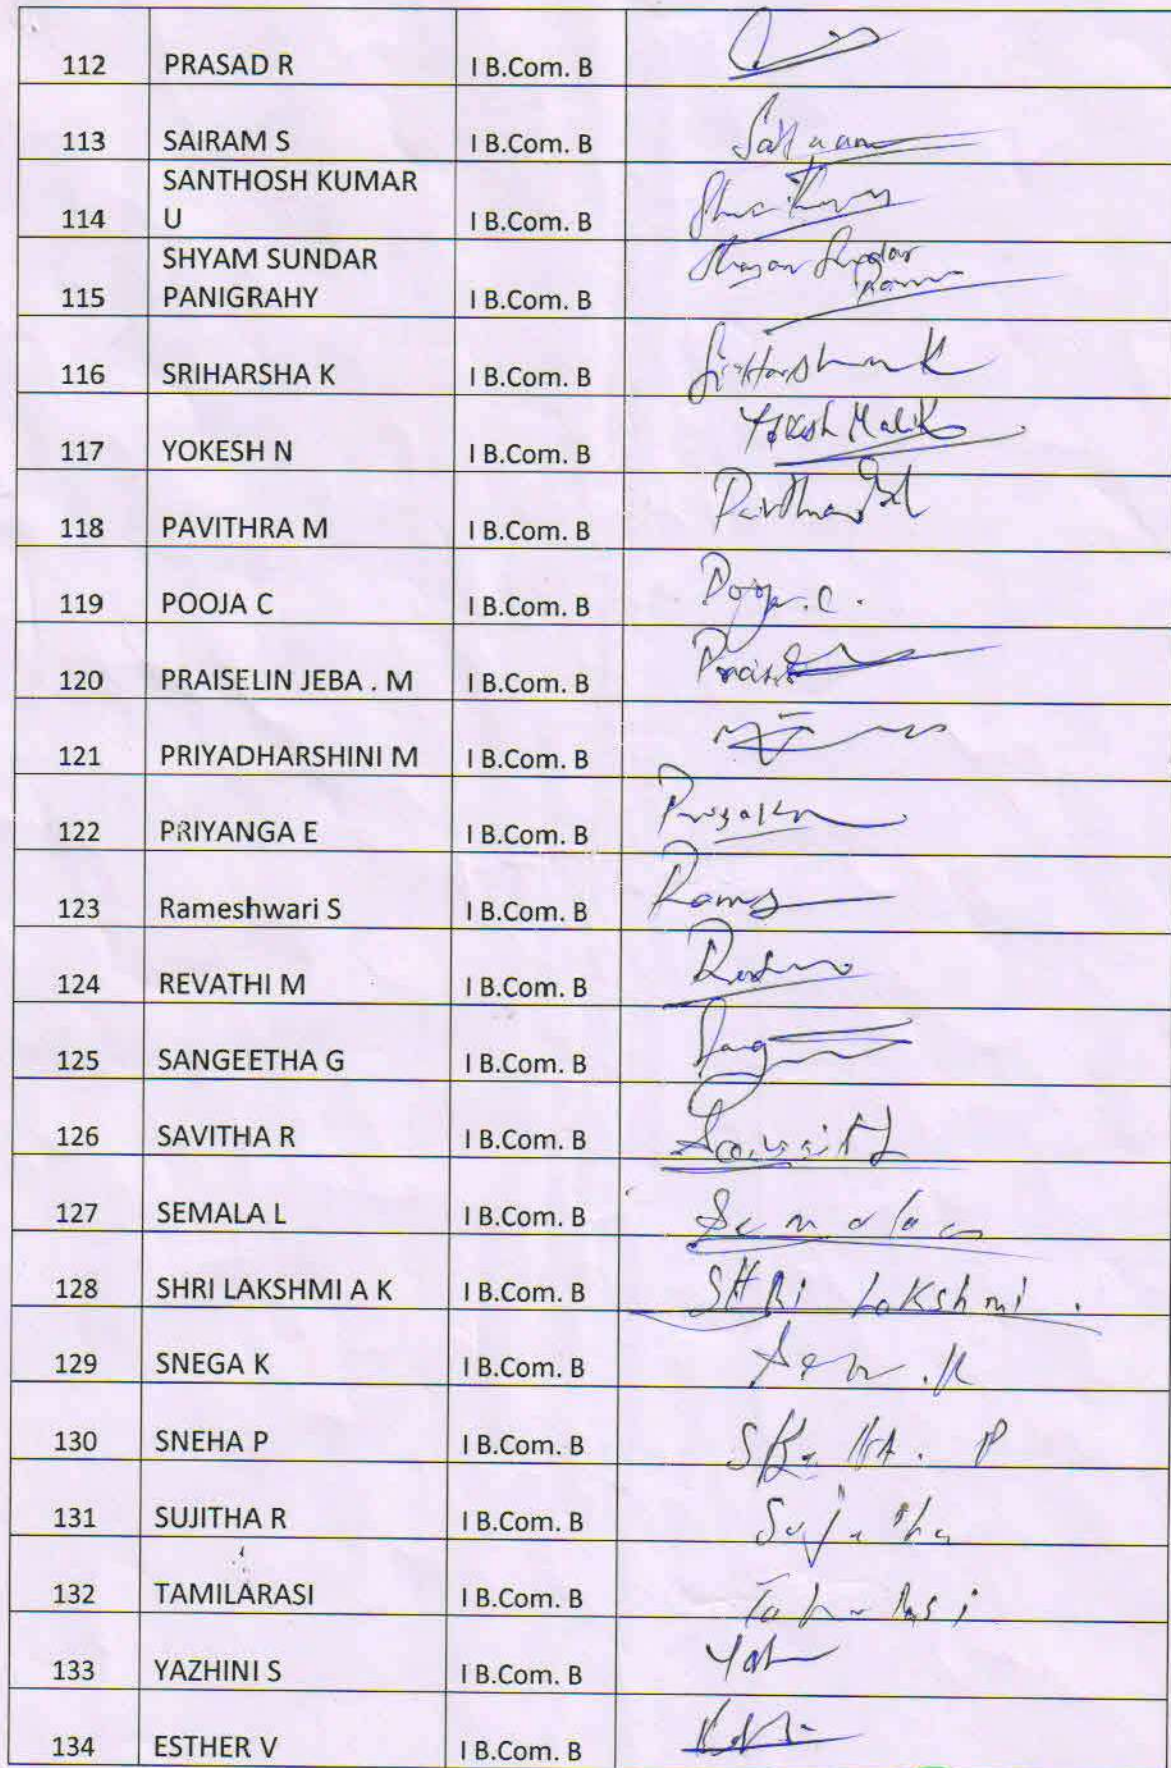 112 PRASAD R I B.Com. B
113 SAIRAM S I B.Com. B
SANTHOSH KUMAR
114 U I B.Com. B
SHYAM SUNDAR
115 PANIGRAHY I B.Com. B
116 SRIHARSHA K I B.Com. B
117 YOKESH N I B.Com. B Yokesh Malik
118 PAVITHRA M I B.Com. B
119 POOJA C I B.Com. B Pooja.C.
120 PRAISELIN JEBA . M I B.Com. B
121 PRIYADHARSHINI M I B.Com. B
122 PRIYANGA E I B.Com. B
123 Rameshwari S I B.Com. B
124 REVATHI M I B.Com. B
125 SANGEETHA G I B.Com. B
126 SAVITHA R I B.Com. B
127 SEMALA L I B.Com. B Semala
128 SHRI LAKSHMI A K I B.Com. B SHRi Lakshmi.
129 SNEGA K I B.Com. B
130 SNEHA P I B.Com. B
131 SUJITHA R I B.Com. B
132 TAMILARASI I B.Com. B
133 YAZHINI S I B.Com. B
134 ESTHER V I B.Com. B